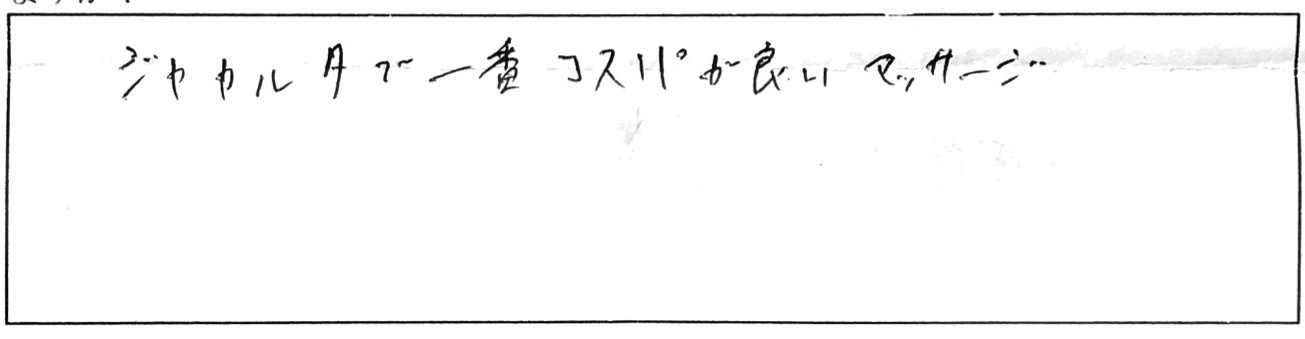 ジャカルタで一番コスパが良いマッサージ